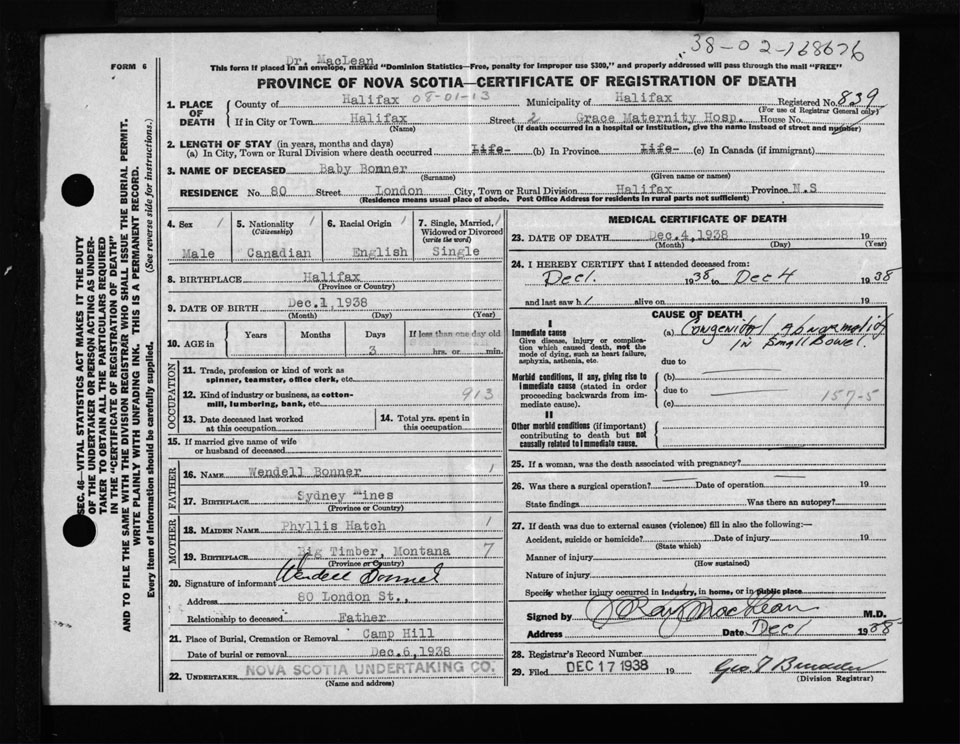 38-02-168676
Dr. MacLean
FORM 6
This form if placed in an envelope, marked "Dominion Statistics—Free, penalty for improper use $300," and properly addressed will pass through the mail "FREE"
PROVINCE OF NOVA SCOTIA—CERTIFICATE OF REGISTRATION OF DEATH
1. PLACE OF DEATH
County of Halifax 08-01-13 Municipality of Halifax Registered No. 839
(For use of Registrar General only)
If in City or Town Halifax Street 2 Grace Maternity Hosp. House No.
(Name) (If death occurred in a hospital or institution, give the name instead of street and number)
2. LENGTH OF STAY (in years, months and days)
(a) In City, Town or Rural Division where death occurred Life- (b) In Province Life- (c) In Canada (if immigrant)
3. NAME OF DECEASED Baby Bonner
(Surname) (Given name or names)
RESIDENCE No. 80 Street London City, Town or Rural Division Halifax Province N.S
(Residence means usual place of abode. Post Office Address for residents in rural parts not sufficient)
4. Sex Male
5. Nationality (Citizenship) Canadian
6. Racial Origin English
7. Single, Married, Widowed or Divorced (write the word) Single
8. BIRTHPLACE Halifax
(Province or Country)
9. DATE OF BIRTH Dec.1,1938
(Month) (Day) (Year)
10. AGE in Years Months Days 3 If less than one day old hrs. or min.
OCCUPATION
11. Trade, profession or kind of work as spinner, teamster, office clerk, etc.
12. Kind of industry or business, as cotton-mill, lumbering, bank, etc. 913
13. Date deceased last worked at this occupation
14. Total yrs. spent in this occupation
15. If married give name of wife or husband of deceased
FATHER
16. NAME Wendell Bonner 1
17. BIRTHPLACE Sydney Mines
(Province or Country)
MOTHER
18. MAIDEN NAME Phyllis Hatch 1
19. BIRTHPLACE Big Timber, Montana 7
(Province or Country)
20. Signature of informant Wendell Bonner
Address 80 London St.,
Relationship to deceased Father
21. Place of Burial, Cremation or Removal Camp Hill
Date of burial or removal Dec.6,1938
22. UNDERTAKER NOVA SCOTIA UNDERTAKING CO.
(Name and address)
MEDICAL CERTIFICATE OF DEATH
23. DATE OF DEATH Dec.4,1938 19
(Month) (Day) (Year)
24. I HEREBY CERTIFY that I attended deceased from:
Dec 1. 1938 to Dec 4 1938
and last saw h alive on 19
CAUSE OF DEATH
I
Immediate cause
Give disease, injury or complication which caused death, not the mode of dying, such as heart failure, asphyxia, asthenia, etc.
(a) Congenital abnormality in Small Bowel.
due to
Morbid conditions, if any, giving rise to immediate cause (stated in order proceeding backwards from immediate cause).
(b)
due to
(c) 157-5
II
Other morbid conditions (if important) contributing to death but not causally related to immediate cause.
25. If a woman, was the death associated with pregnancy?
26. Was there a surgical operation? Date of operation 19
State findings Was there an autopsy?
27. If death was due to external causes (violence) fill in also the following:—
Accident, suicide or homicide? Date of injury 19
(State which)
Manner of injury
(How sustained)
Nature of injury
Specify whether injury occurred in industry, in home, or in public place
Signed by J Ray MacLean M.D.
Address Date Dec 1 1938
28. Registrar's Record Number
29. Filed DEC 17 1938 19
(Division Registrar)
SEC. 46—VITAL STATISTICS ACT MAKES IT THE DUTY
OF THE UNDERTAKER OR PERSON ACTING AS UNDER-
TAKER TO OBTAIN ALL THE PARTICULARS REQUIRED
IN THE "CERTIFICATE OF REGISTRATION OF DEATH"
AND TO FILE THE SAME WITH THE DIVISION REGISTRAR WHO SHALL ISSUE THE BURIAL PERMIT.
WRITE PLAINLY WITH UNFADING INK. THIS IS A PERMANENT RECORD.
Every item of information should be carefully supplied. (See reverse side for instructions.)